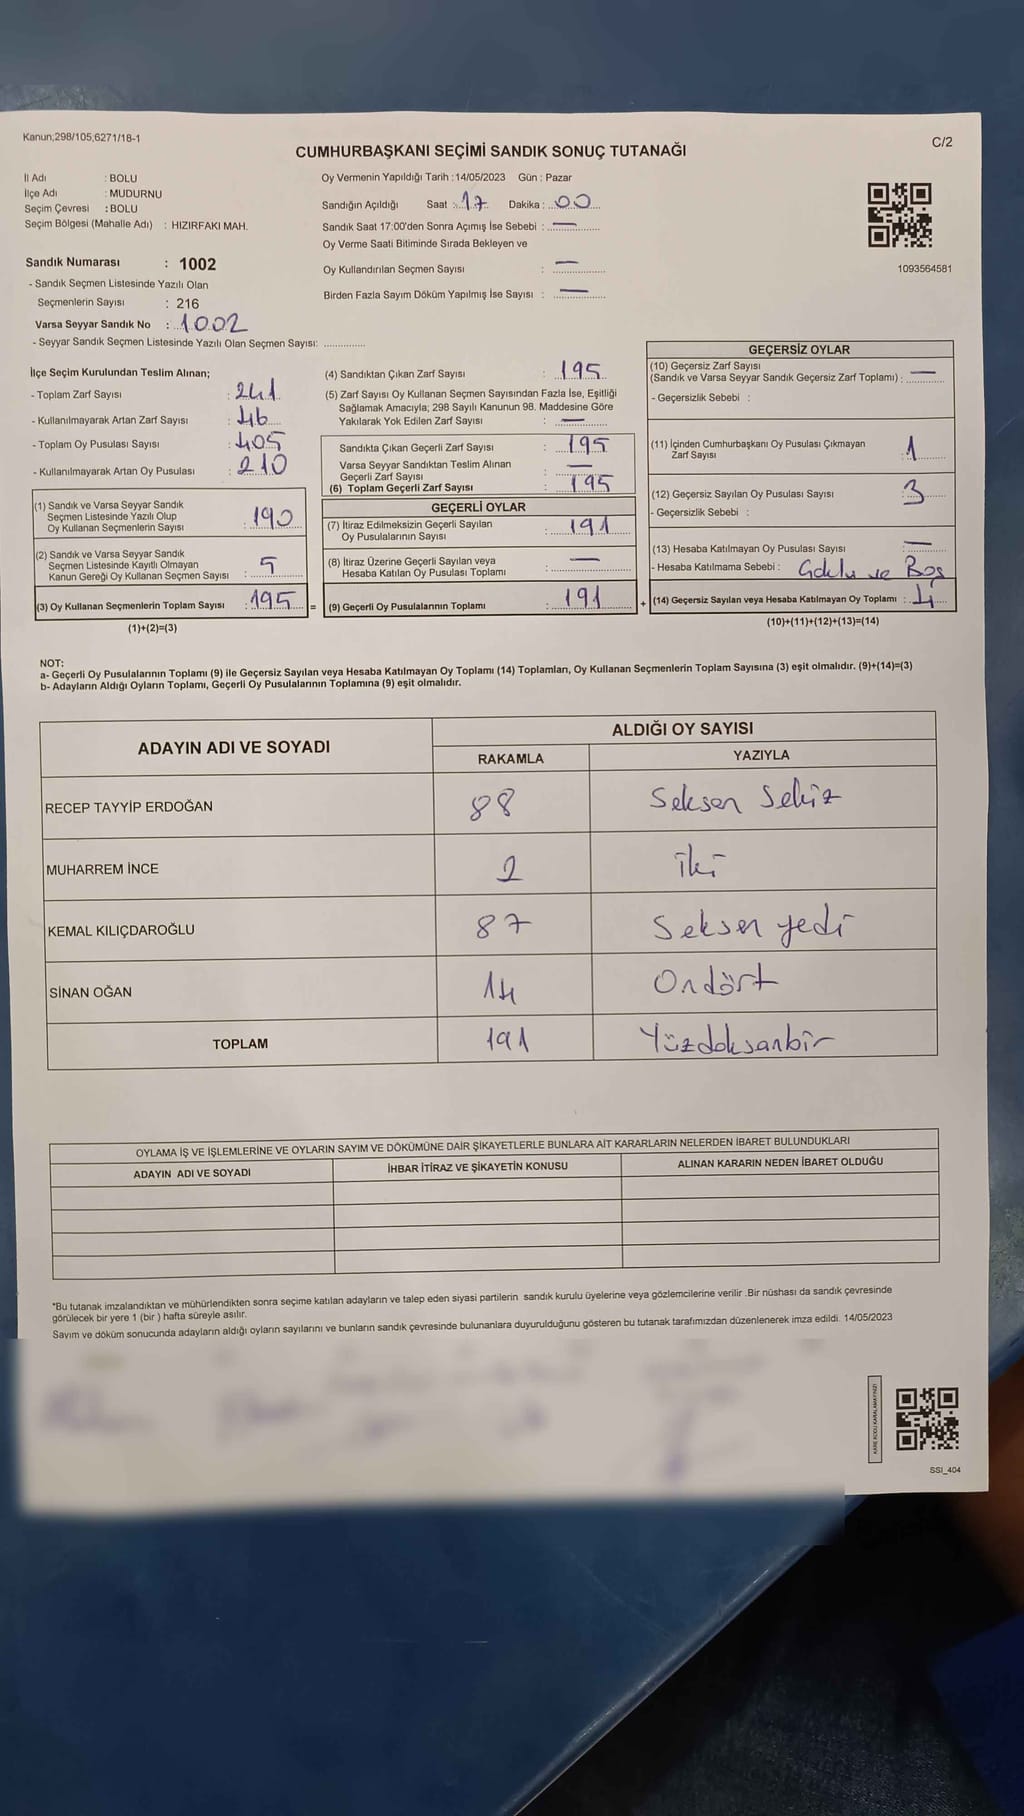 Kanun;298/105,6271/18-1
C/2
CUMHURBAŞKANI SEÇİMİ SANDIK SONUÇ TUTANAĞI
İl Adı : BOLU
İlçe Adı : MUDURNU
Seçim Çevresi : BOLU
Seçim Bölgesi (Mahalle Adı) : HIZIRFAKI MAH.
Oy Vermenin Yapıldığı Tarih :14/05/2023 Gün : Pazar
Sandığın Açıldığı Saat : 17 Dakika : 00
Sandık Saat 17:00'den Sonra Açımış İse Sebebi : —
Oy Verme Saati Bitiminde Sırada Bekleyen ve
Oy Kullandırılan Seçmen Sayısı : —
Birden Fazla Sayım Döküm Yapılmış İse Sayısı : —
1093564581
Sandık Numarası : 1002
- Sandık Seçmen Listesinde Yazılı Olan
Seçmenlerin Sayısı : 216
Varsa Seyyar Sandık No : 1002
- Seyyar Sandık Seçmen Listesinde Yazılı Olan Seçmen Sayısı: ..............
İlçe Seçim Kurulundan Teslim Alınan;
- Toplam Zarf Sayısı : 241
- Kullanılmayarak Artan Zarf Sayısı : 46
- Toplam Oy Pusulası Sayısı : 405
- Kullanılmayarak Artan Oy Pusulası : 210
(1) Sandık ve Varsa Seyyar Sandık
Seçmen Listesinde Yazılı Olup
Oy Kullanan Seçmenlerin Sayısı : 190
(2) Sandık ve Varsa Seyyar Sandık
Seçmen Listesinde Kayıtlı Olmayan
Kanun Gereği Oy Kullanan Seçmen Sayısı : 5
(3) Oy Kullanan Seçmenlerin Toplam Sayısı : 195 =
(1)+(2)=(3)
(4) Sandıktan Çıkan Zarf Sayısı : 195
(5) Zarf Sayısı Oy Kullanan Seçmen Sayısından Fazla İse, Eşitliği
Sağlamak Amacıyla; 298 Sayılı Kanunun 98. Maddesine Göre
Yakılarak Yok Edilen Zarf Sayısı : —
Sandıkta Çıkan Geçerli Zarf Sayısı : 195
Varsa Seyyar Sandıktan Teslim Alınan
Geçerli Zarf Sayısı : —
(6) Toplam Geçerli Zarf Sayısı : 195
GEÇERLİ OYLAR
(7) İtiraz Edilmeksizin Geçerli Sayılan
Oy Pusulalarının Sayısı : 191
(8) İtiraz Üzerine Geçerli Sayılan veya
Hesaba Katılan Oy Pusulası Toplamı : —
(9) Geçerli Oy Pusulalarının Toplamı : 191 +
GEÇERSİZ OYLAR
(10) Geçersiz Zarf Sayısı
(Sandık ve Varsa Seyyar Sandık Geçersiz Zarf Toplamı) : —
- Geçersizlik Sebebi :
(11) İçinden Cumhurbaşkanı Oy Pusulası Çıkmayan
Zarf Sayısı : 1
(12) Geçersiz Sayılan Oy Pusulası Sayısı : 3
- Geçersizlik Sebebi :
(13) Hesaba Katılmayan Oy Pusulası Sayısı : —
- Hesaba Katılmama Sebebi : ve Boş
(14) Geçersiz Sayılan veya Hesaba Katılmayan Oy Toplamı : 4
(10)+(11)+(12)+(13)=(14)
NOT:
a- Geçerli Oy Pusulalarının Toplamı (9) ile Geçersiz Sayılan veya Hesaba Katılmayan Oy Toplamı (14) Toplamları, Oy Kullanan Seçmenlerin Toplam Sayısına (3) eşit olmalıdır. (9)+(14)=(3)
b- Adayların Aldığı Oyların Toplamı, Geçerli Oy Pusulalarının Toplamına (9) eşit olmalıdır.
ADAYIN ADI VE SOYADI
ALDIĞI OY SAYISI
RAKAMLA YAZIYLA
RECEP TAYYİP ERDOĞAN 88 Seksen Sekiz
MUHARREM İNCE 2 iki
KEMAL KILIÇDAROĞLU 87 Seksen yedi
SİNAN OĞAN 14 Ondört
TOPLAM 191 Yüzdoksanbir
OYLAMA İŞ VE İŞLEMLERİNE VE OYLARIN SAYIM VE DÖKÜMÜNE DAİR ŞİKAYETLERLE BUNLARA AİT KARARLARIN NELERDEN İBARET BULUNDUKLARI
ADAYIN ADI VE SOYADI İHBAR İTİRAZ VE ŞİKAYETİN KONUSU ALINAN KARARIN NEDEN İBARET OLDUĞU
*Bu tutanak imzalandıktan ve mühürlendikten sonra seçime katılan adayların ve talep eden siyasi partilerin sandık kurulu üyelerine veya gözlemcilerine verilir .Bir nüshası da sandık çevresinde
görülecek bir yere 1 (bir ) hafta süreyle asılır.
Sayım ve döküm sonucunda adayların aldığı oyların sayılarını ve bunların sandık çevresinde bulunanlara duyurulduğunu gösteren bu tutanak tarafımızdan düzenlenerek imza edildi. 14/05/2023
KARE KODU KARALAMAYINIZ!
SSI_404